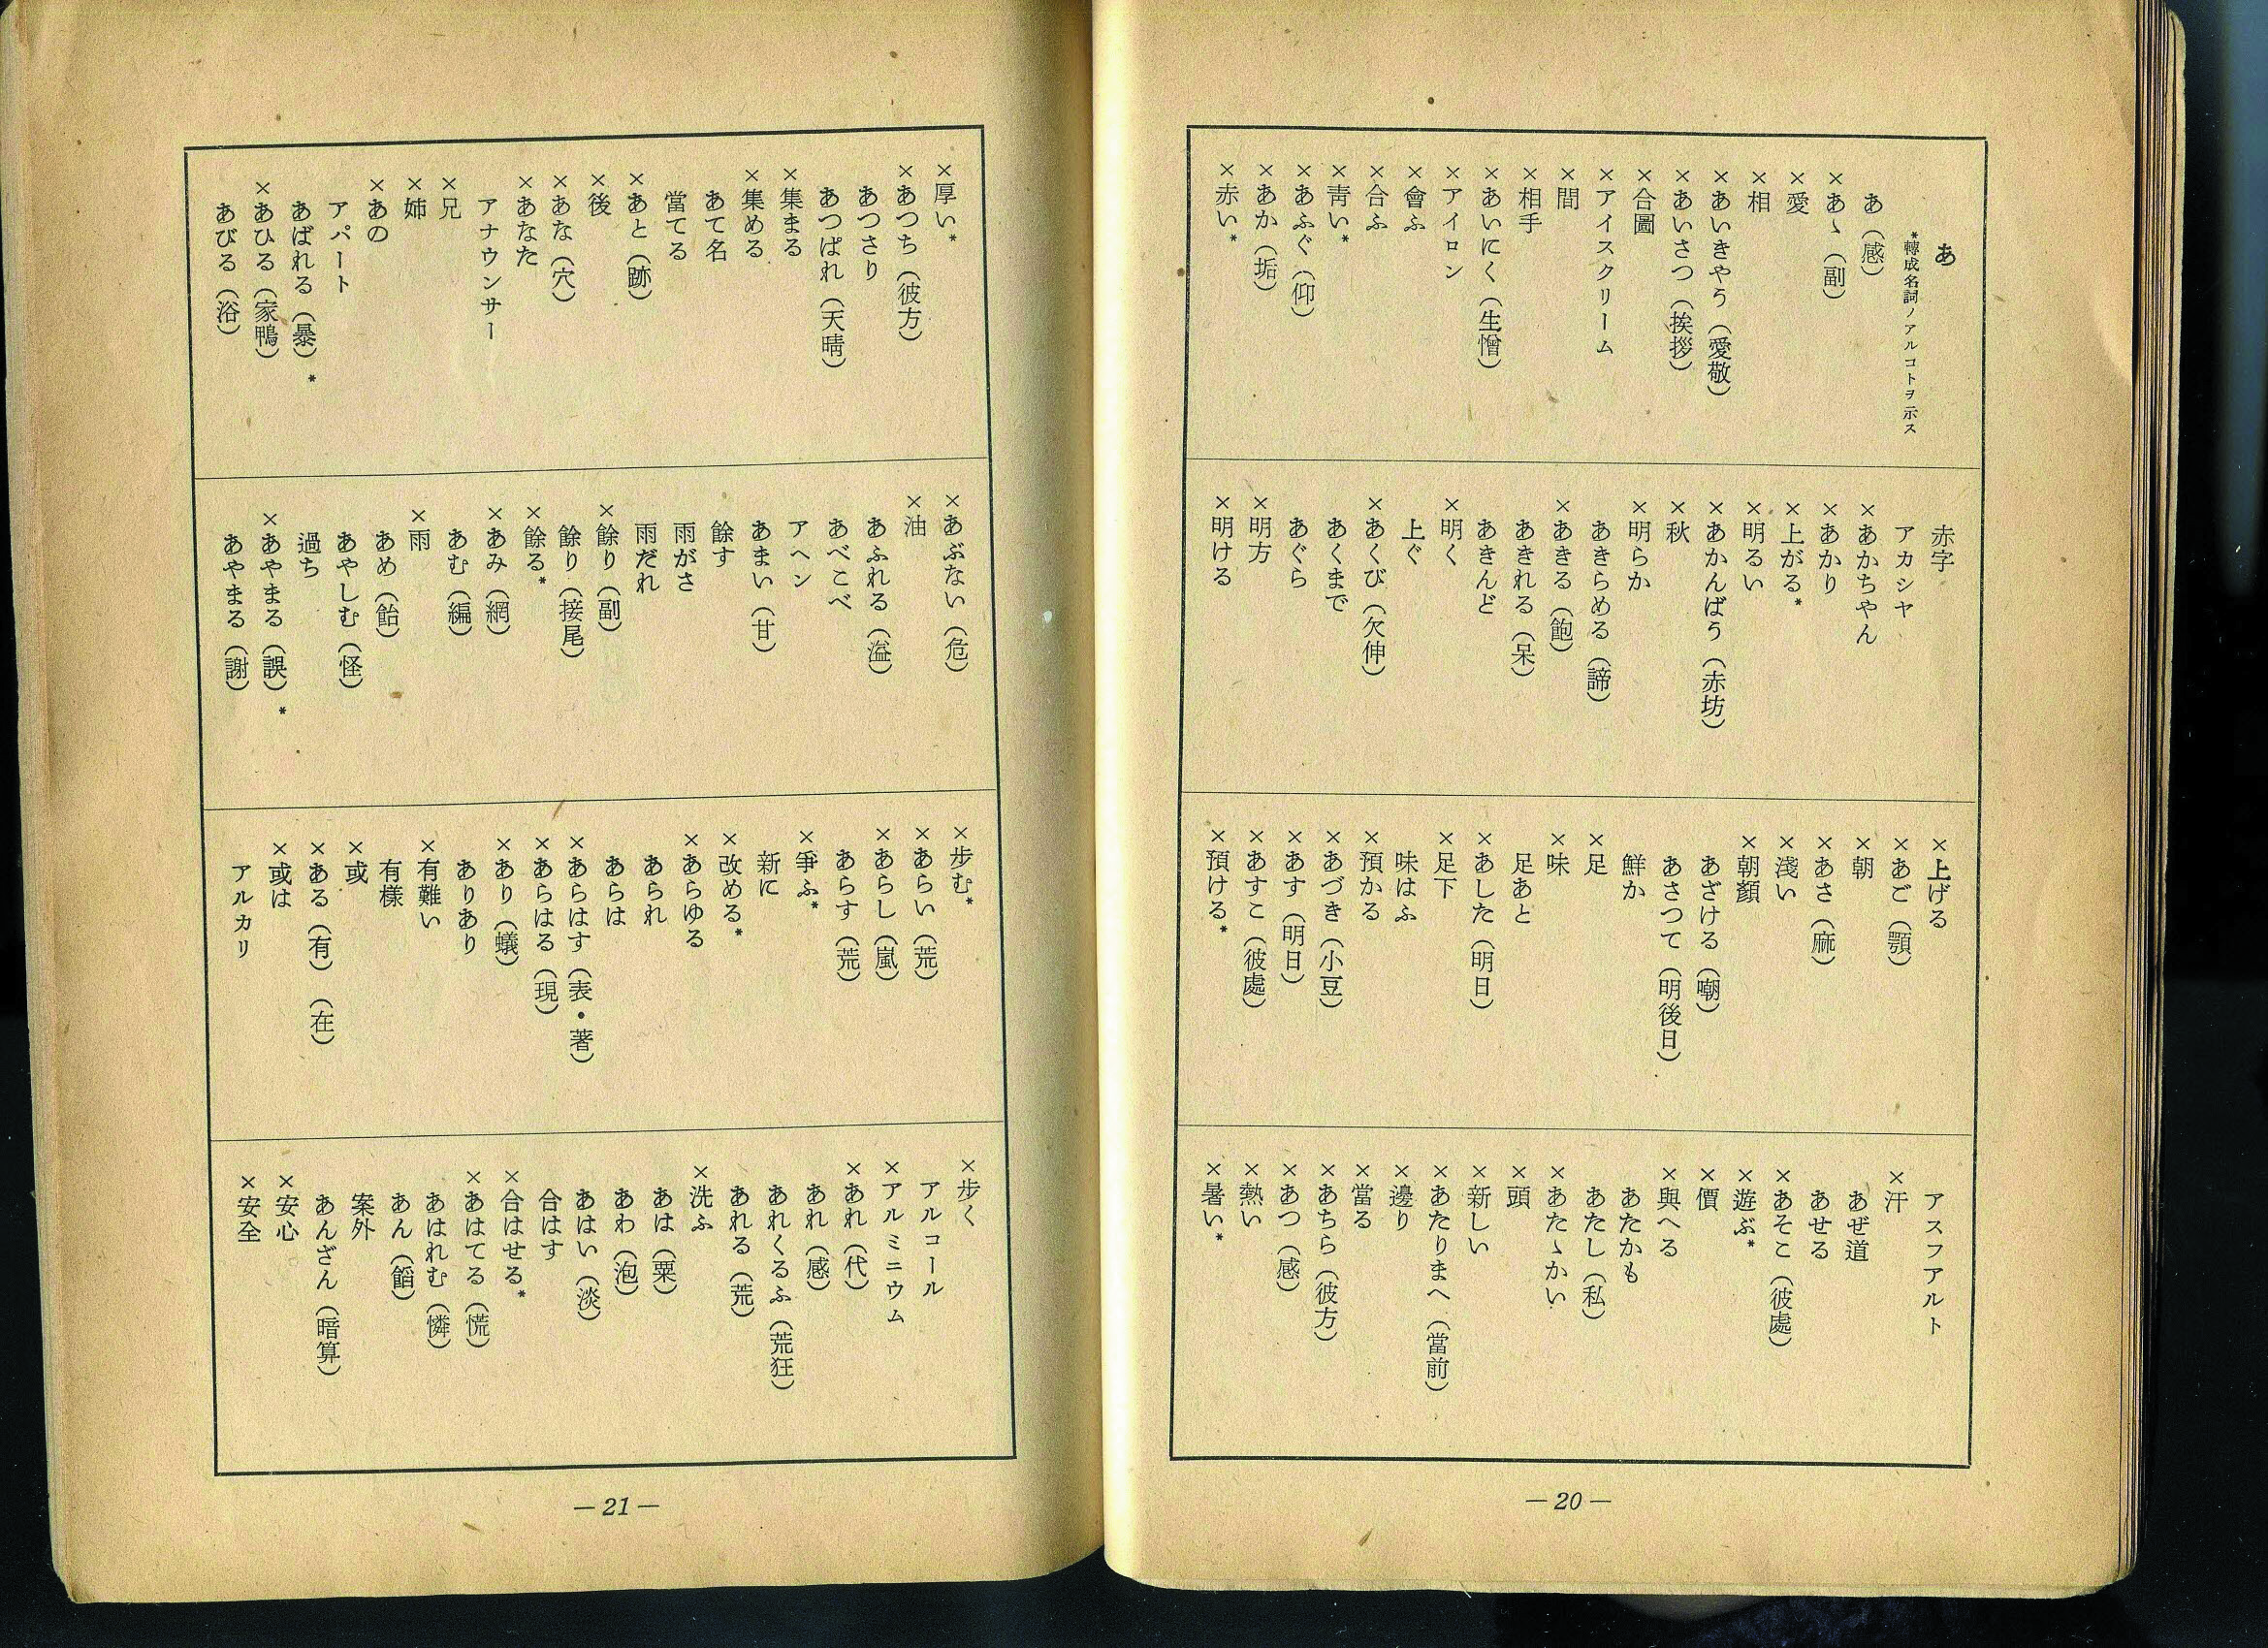 あ
*轉成名詞ノアルコトヲ示ス
あ（感）
×あゝ（副）
×愛
×相
×あいきやう（愛敬）
×あいさつ（挨拶）
×合圖
×アイスクリーム
×間
×相手
×あいにく（生憎）
×アイロン
×會ふ
×合ふ
×靑い*
×あふぐ（仰）
×あか（垢）
×赤い*
赤字
アカシヤ
×あかちやん
×あかり
×上がる*
×明るい
×あかんばう（赤坊）
×秋
×明らか
あきらめる（諦）
×あきる（飽）
あきれる（呆）
あきんど
×明く
上ぐ
×あくび（欠伸）
あくまで
あぐら
×明方
×明ける
×上げる
×あご（顎）
×朝
×あさ（麻）
×淺い
×朝顏
あざける（嘲）
あさつて（明後日）
鮮か
×足
×味
足あと
×あした（明日）
×足下
味はふ
×預かる
×あづき（小豆）
×あす（明日）
×あすこ（彼處）
×預ける*
アスフアルト
×汗
あぜ道
あせる
×あそこ（彼處）
×遊ぶ*
×價
×與へる
あたかも
あたし（私）
×あたゝかい
×頭
×新しい
×あたりまへ（當前）
×邊り
×當る
×あちら（彼方）
×あつ（感）
×熱い
×暑い*
—20—
×厚い*
×あつち（彼方）
あつさり
あつぱれ（天晴）
×集まる
×集める
あて名
當てる
×あと（跡）
×後
×あな（穴）
×あなた
アナウンサー
×兄
×姉
×あの
アパート
あばれる（暴）*
×あひる（家鴨）
あびる（浴）
×あぶない（危）
×油
あふれる（溢）
あべこべ
アヘン
あまい（甘）
餘す
雨がさ
雨だれ
×餘り（副）
餘り（接尾）
×餘る*
×あみ（網）
あむ（編）
×雨
あめ（飴）
あやしむ（怪）
過ち
×あやまる（誤）*
あやまる（謝）
×歩む*
×あらい（荒）
×あらし（嵐）
あらす（荒）
×爭ふ*
新に
×改める*
×あらゆる
あられ
あらは
×あらはす（表・著）
×あらはる（現）
×あり（蟻）
ありあり
×有難い
有樣
×或
×ある（有）（在）
×或は
アルカリ
×歩く
アルコール
×アルミニウム
×あれ（代）
あれ（感）
あれくるふ（荒狂）
あれる（荒）
×洗ふ
あは（粟）
あわ（泡）
あはい（淡）
合はす
×合はせる*
×あはてる（慌）
あはれむ（憐）
あん（餡）
案外
あんざん（暗算）
×安心
×安全
—21—